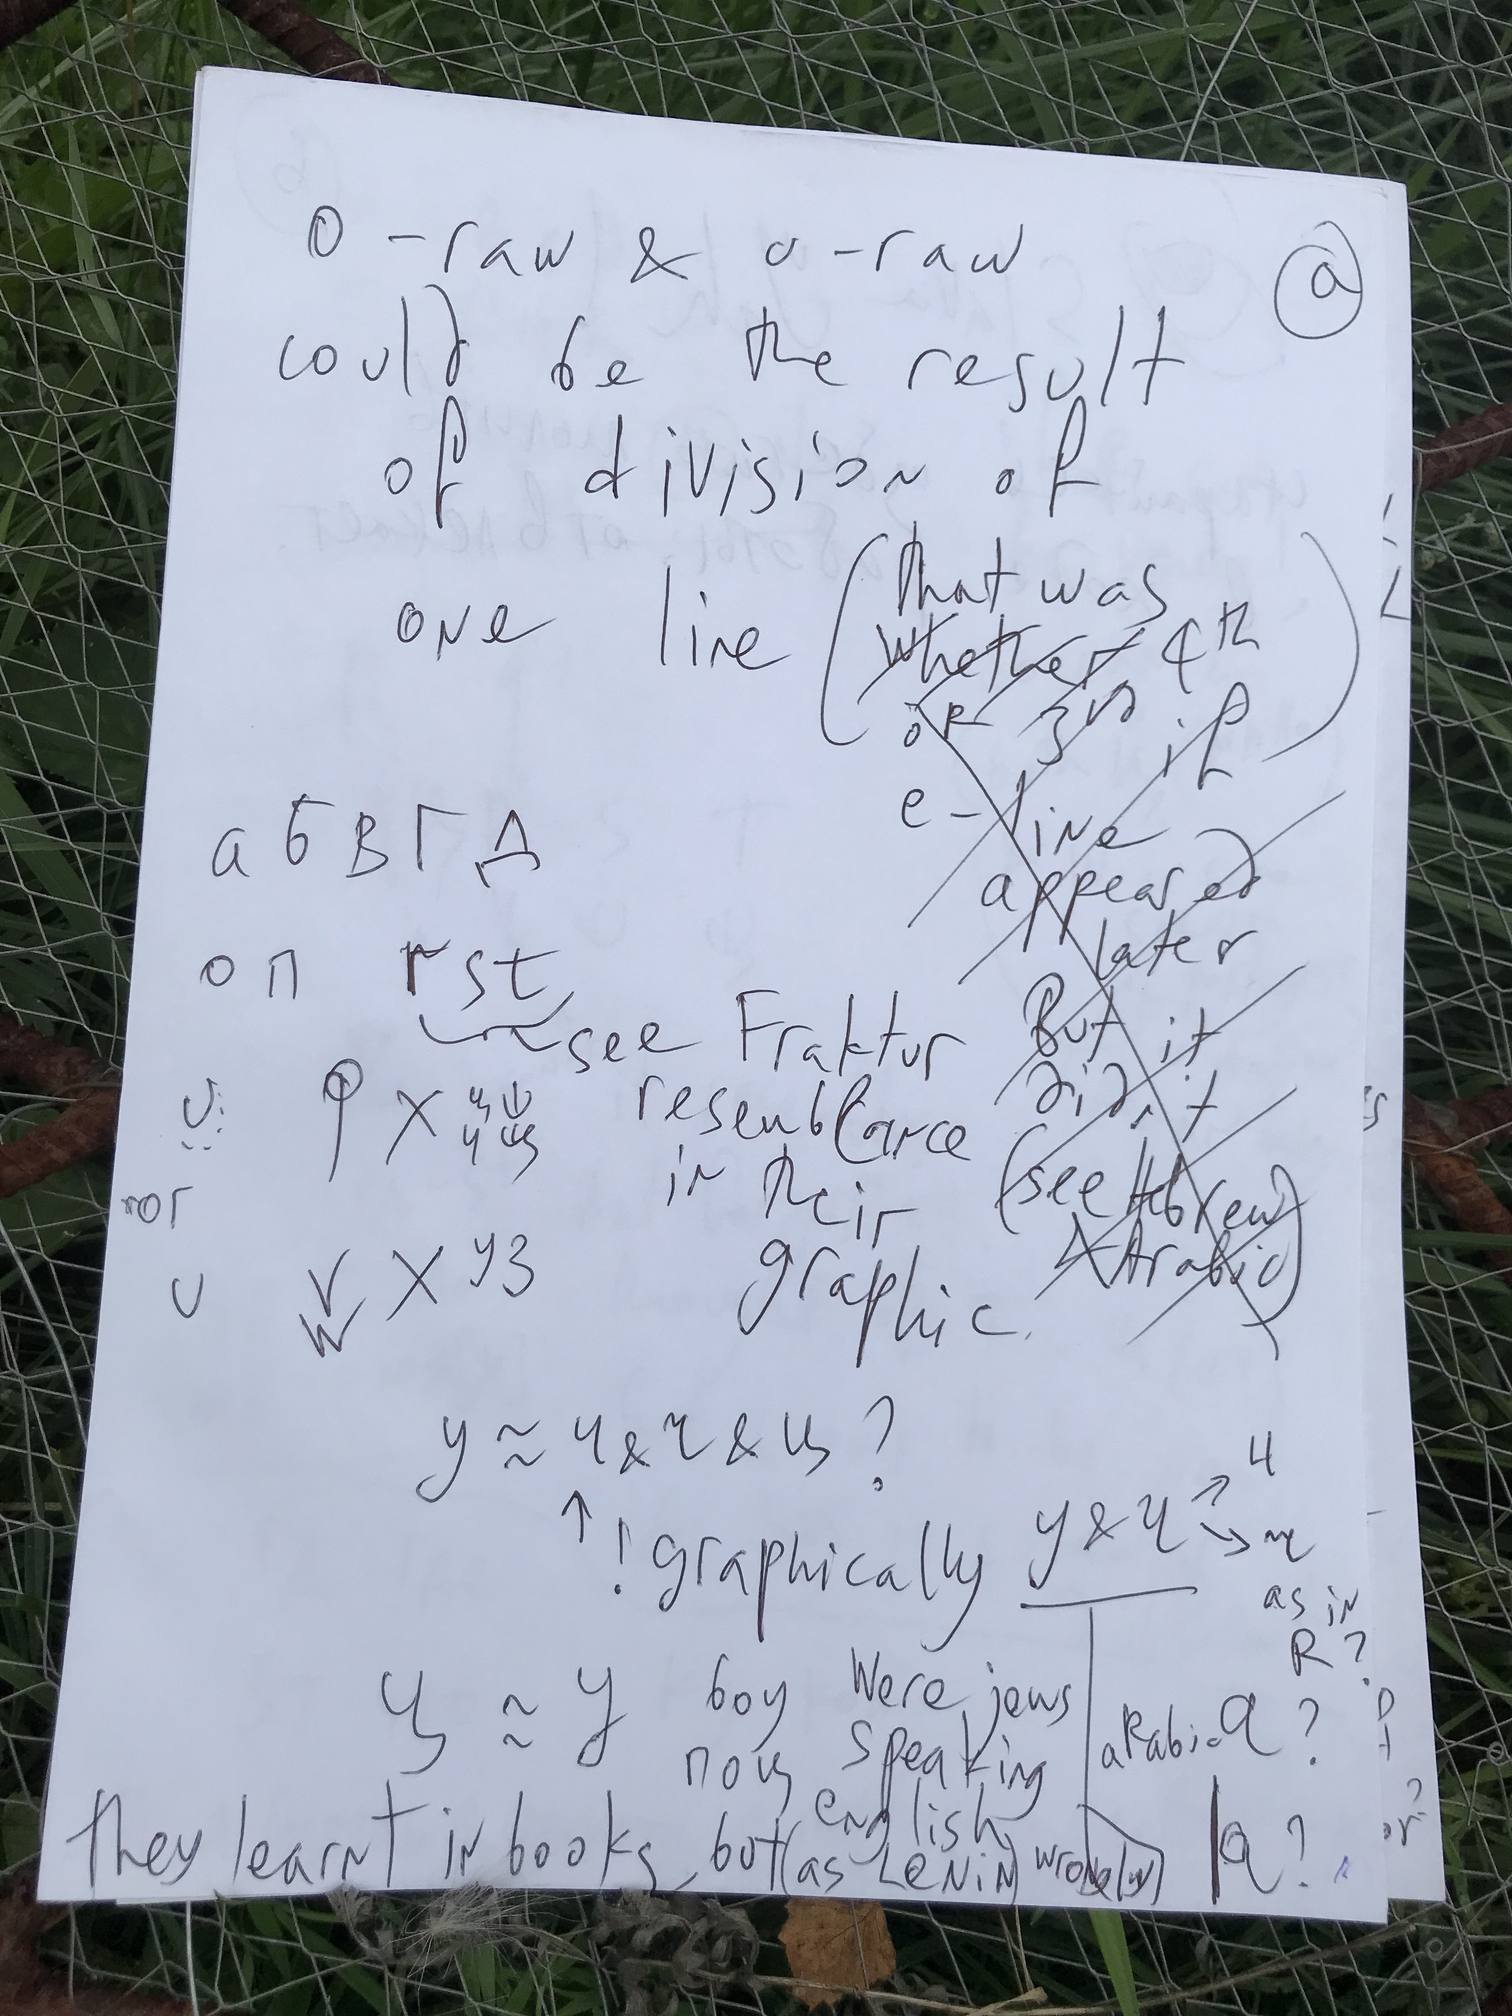 a
o-raw & o-raw
could be the result
of division of
one line (that was
whether 4th
or 3rd if
e-line
appeared
later
But it
didn't
(see Hebrew
& Arabic))
а б в г д
о п rst
see Fraktur
resemblance
in their
graphic.
φ χ
nor
u v x y з
w
y ≈ ч & r & ц ?
↑ ! graphically y & ч → ч
as in
R?
ц ≈ y boy Were jews
поц speaking
english
arabic q?
they learnt in books, but (as LENIN) wrongly) |q?